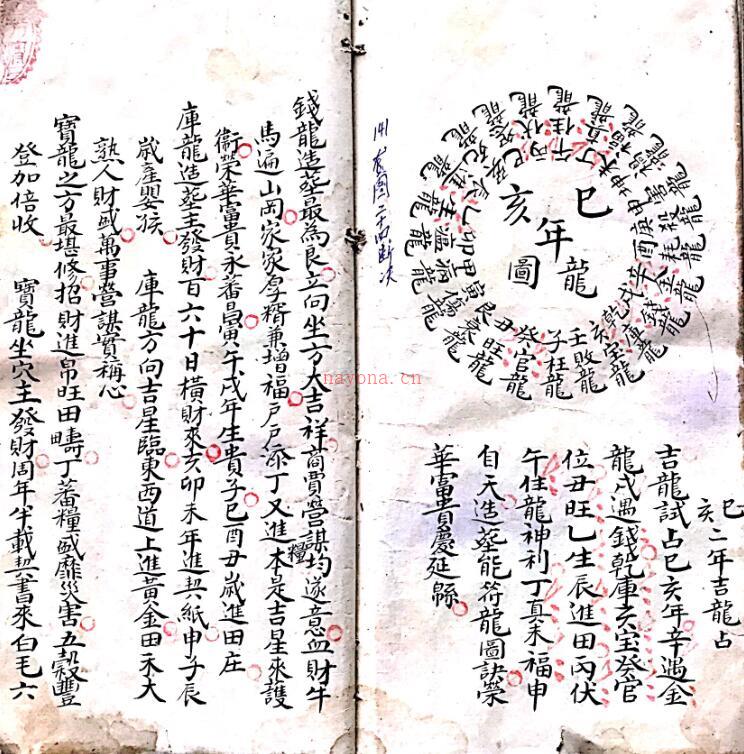 巳
亥
年
龍
圖
壬敗龍
子枉龍
癸官龍
丑旺龍
艮喪龍
寅傷龍
甲病龍
卯瘟龍
乙生龍
辰進龍
巽死龍
丙伏龍
午住龍
未福龍
庚殺龍
酉耗龍
辛金龍
戌錢龍
乾庫龍
亥宝龍
巳亥二年吉龍占
吉龍試占巳亥年辛遇金
龍戌遇錢乾庫亥宝癸官
位丑旺乙生辰進田丙伏
午住龍神利丁真未福申
自天造塟能符龍圖訣榮
華富貴慶延緜
141
錢龍造塟最為良立向坐方大吉祥商賈營謀均遂意血財牛
馬遍山岡家家厚糈兼增福戶戶添丁又進糧本是吉星來護
衛榮華富貴永番昌寅午戌年生貴子巳酉丑歲進田庄
庫龍造塟主發財百六十日橫財來亥卯未年進契紙申子辰
歲産嬰孩 庫龍方向吉星臨東西道上進黃金田禾大
熟人財盛萬事營謀實稱心
寶龍之方最堪修招財進帛旺田疇丁蕃糧盛靡災害五穀豐
登加倍收 寶龍坐穴主發財周年半載契書來白毛六
nayona.cn